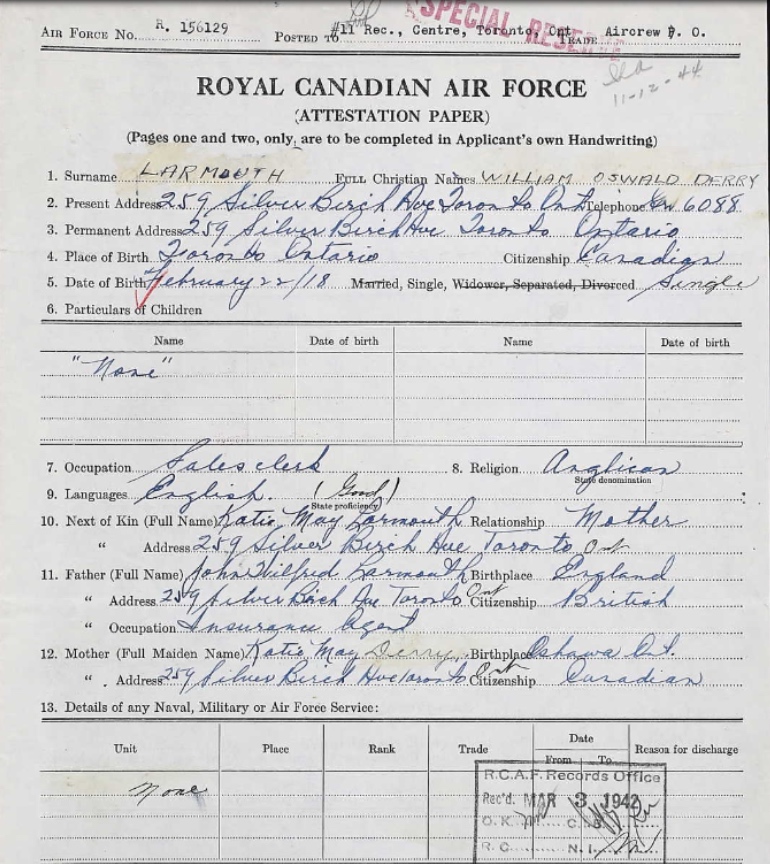 SPECIAL RESERVE
AIR FORCE No. R. 156129 POSTED TO #11 Rec., Centre, Toronto, Ont TRADE Aircrew P. O.
11-12-44
ROYAL CANADIAN AIR FORCE
(ATTESTATION PAPER)
(Pages one and two, only, are to be completed in Applicant's own Handwriting)
1. Surname LARMOUTH FULL Christian Names WILLIAM OSWALD DERRY
2. Present Address 259 Silver Birch Ave Toronto Ont Telephone 6088
3. Permanent Address 259 Silver Birch Ave Toronto Ontario
4. Place of Birth Toronto Ontario Citizenship Canadian
5. Date of Birth February 22/18 Married, Single, Widower, Separated, Divorced Single
6. Particulars of Children
Name Date of birth Name Date of birth
"None"
7. Occupation Sales clerk 8. Religion Anglican
State denomination
9. Languages English. (Good)
State proficiency
10. Next of Kin (Full Name) Katie May Larmouth Relationship Mother
" Address 259 Silver Birch Ave Toronto Ont
11. Father (Full Name) John Wilfred Larmouth Birthplace England
" Address 259 Silver Birch Ave Toronto Ont Citizenship British
" Occupation Insurance Agent
12. Mother (Full Maiden Name) Katie May Derry. Birthplace Oshawa Ont.
" Address 259 Silver Birch Ave Toronto Ont Citizenship Canadian
13. Details of any Naval, Military or Air Force Service:
Unit Place Rank Trade Date From To Reason for discharge
none
R.C.A.F. Records Office
Rec'd. MAR 3 1942
O.K. C.B.
R.C. N.I.